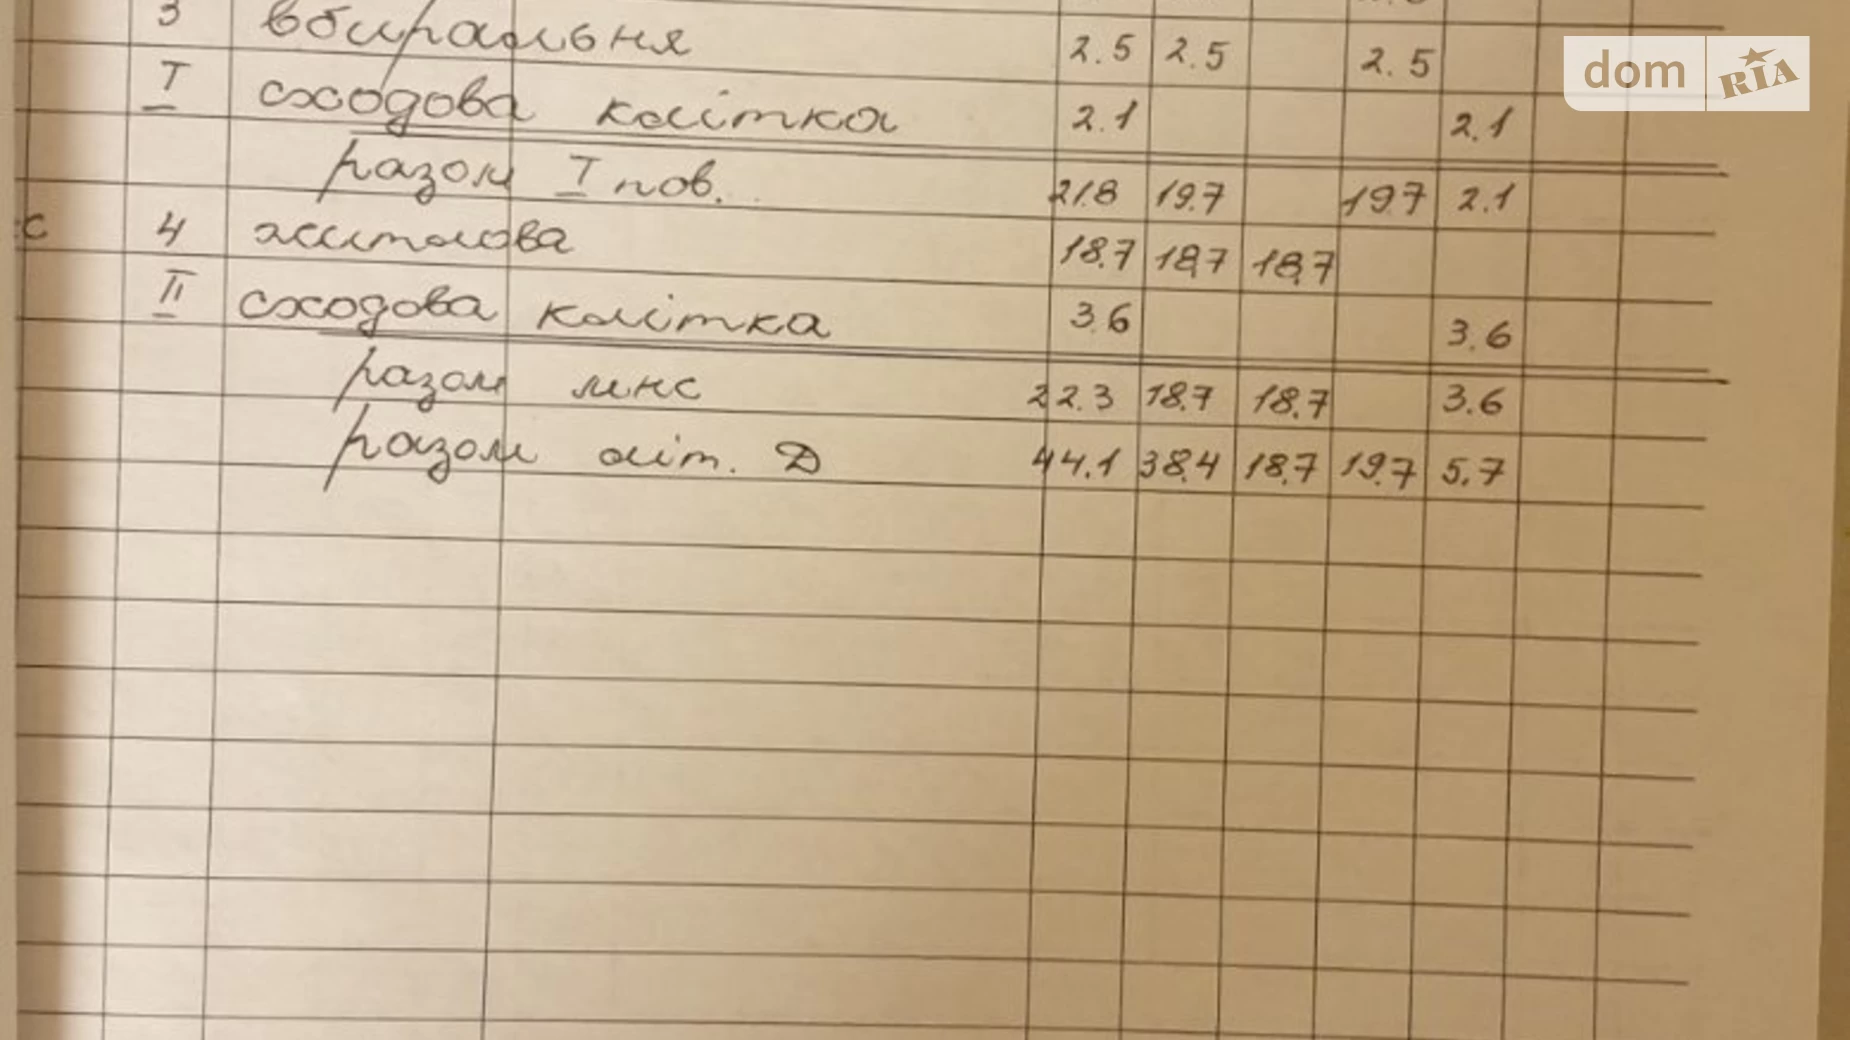 3 вбиральня 2.5 2.5 2.5
I сходова клітка 2.1 2.1
разом I пов. 21.8 19.7 19.7 2.1
с 4 житлова 18.7 18,7 18,7
II сходова клітка 3.6 3.6
разом мнс 22.3 18.7 18.7 3.6
разом літ. Д 44.1 38.4 18,7 19.7 5.7
dom RIA